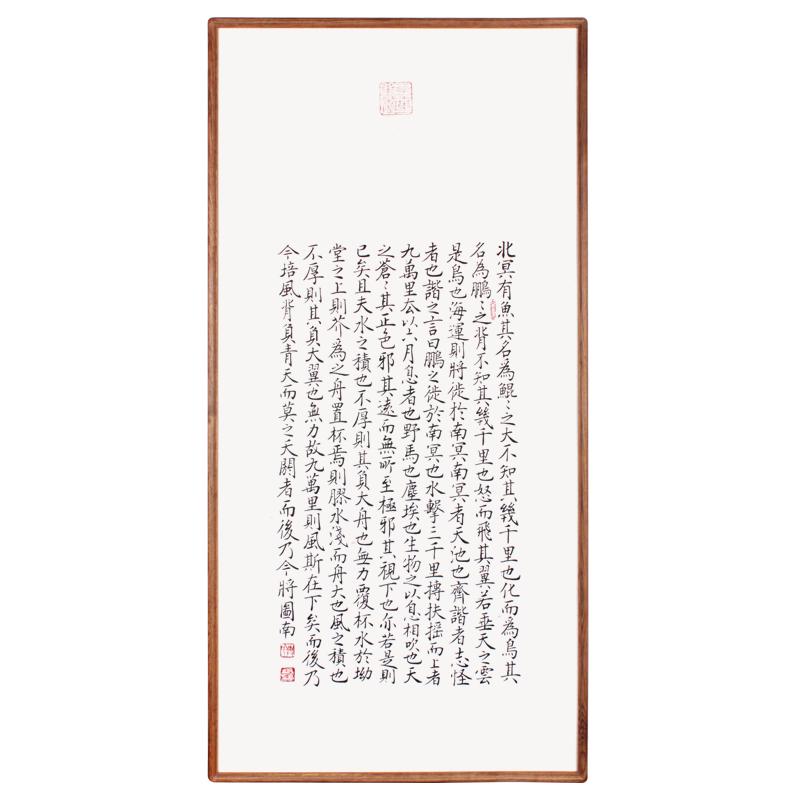 北冥有魚其名為鯤〻之大不知其幾千里也化而為鳥其
名為鵬〻之背不知其幾千里也怒而飛其翼若垂天之雲
是鳥也海運則將徙於南冥南冥者天池也齊諧者志怪
者也諧之言曰鵬之徙於南冥也水擊三千里摶扶搖而上者
九萬里去以六月息者也野馬也塵埃也生物之以息相吹也天
之蒼〻其正色邪其遠而無所至極邪其視下也亦若是則
已矣且夫水之積也不厚則其負大舟也無力覆杯水於坳
堂之上則芥為之舟置杯焉則膠水淺而舟大也風之積也
不厚則其負大翼也無力故九萬里則風斯在下矣而後乃
今培風背負青天而莫之夭閼者而後乃今將圖南